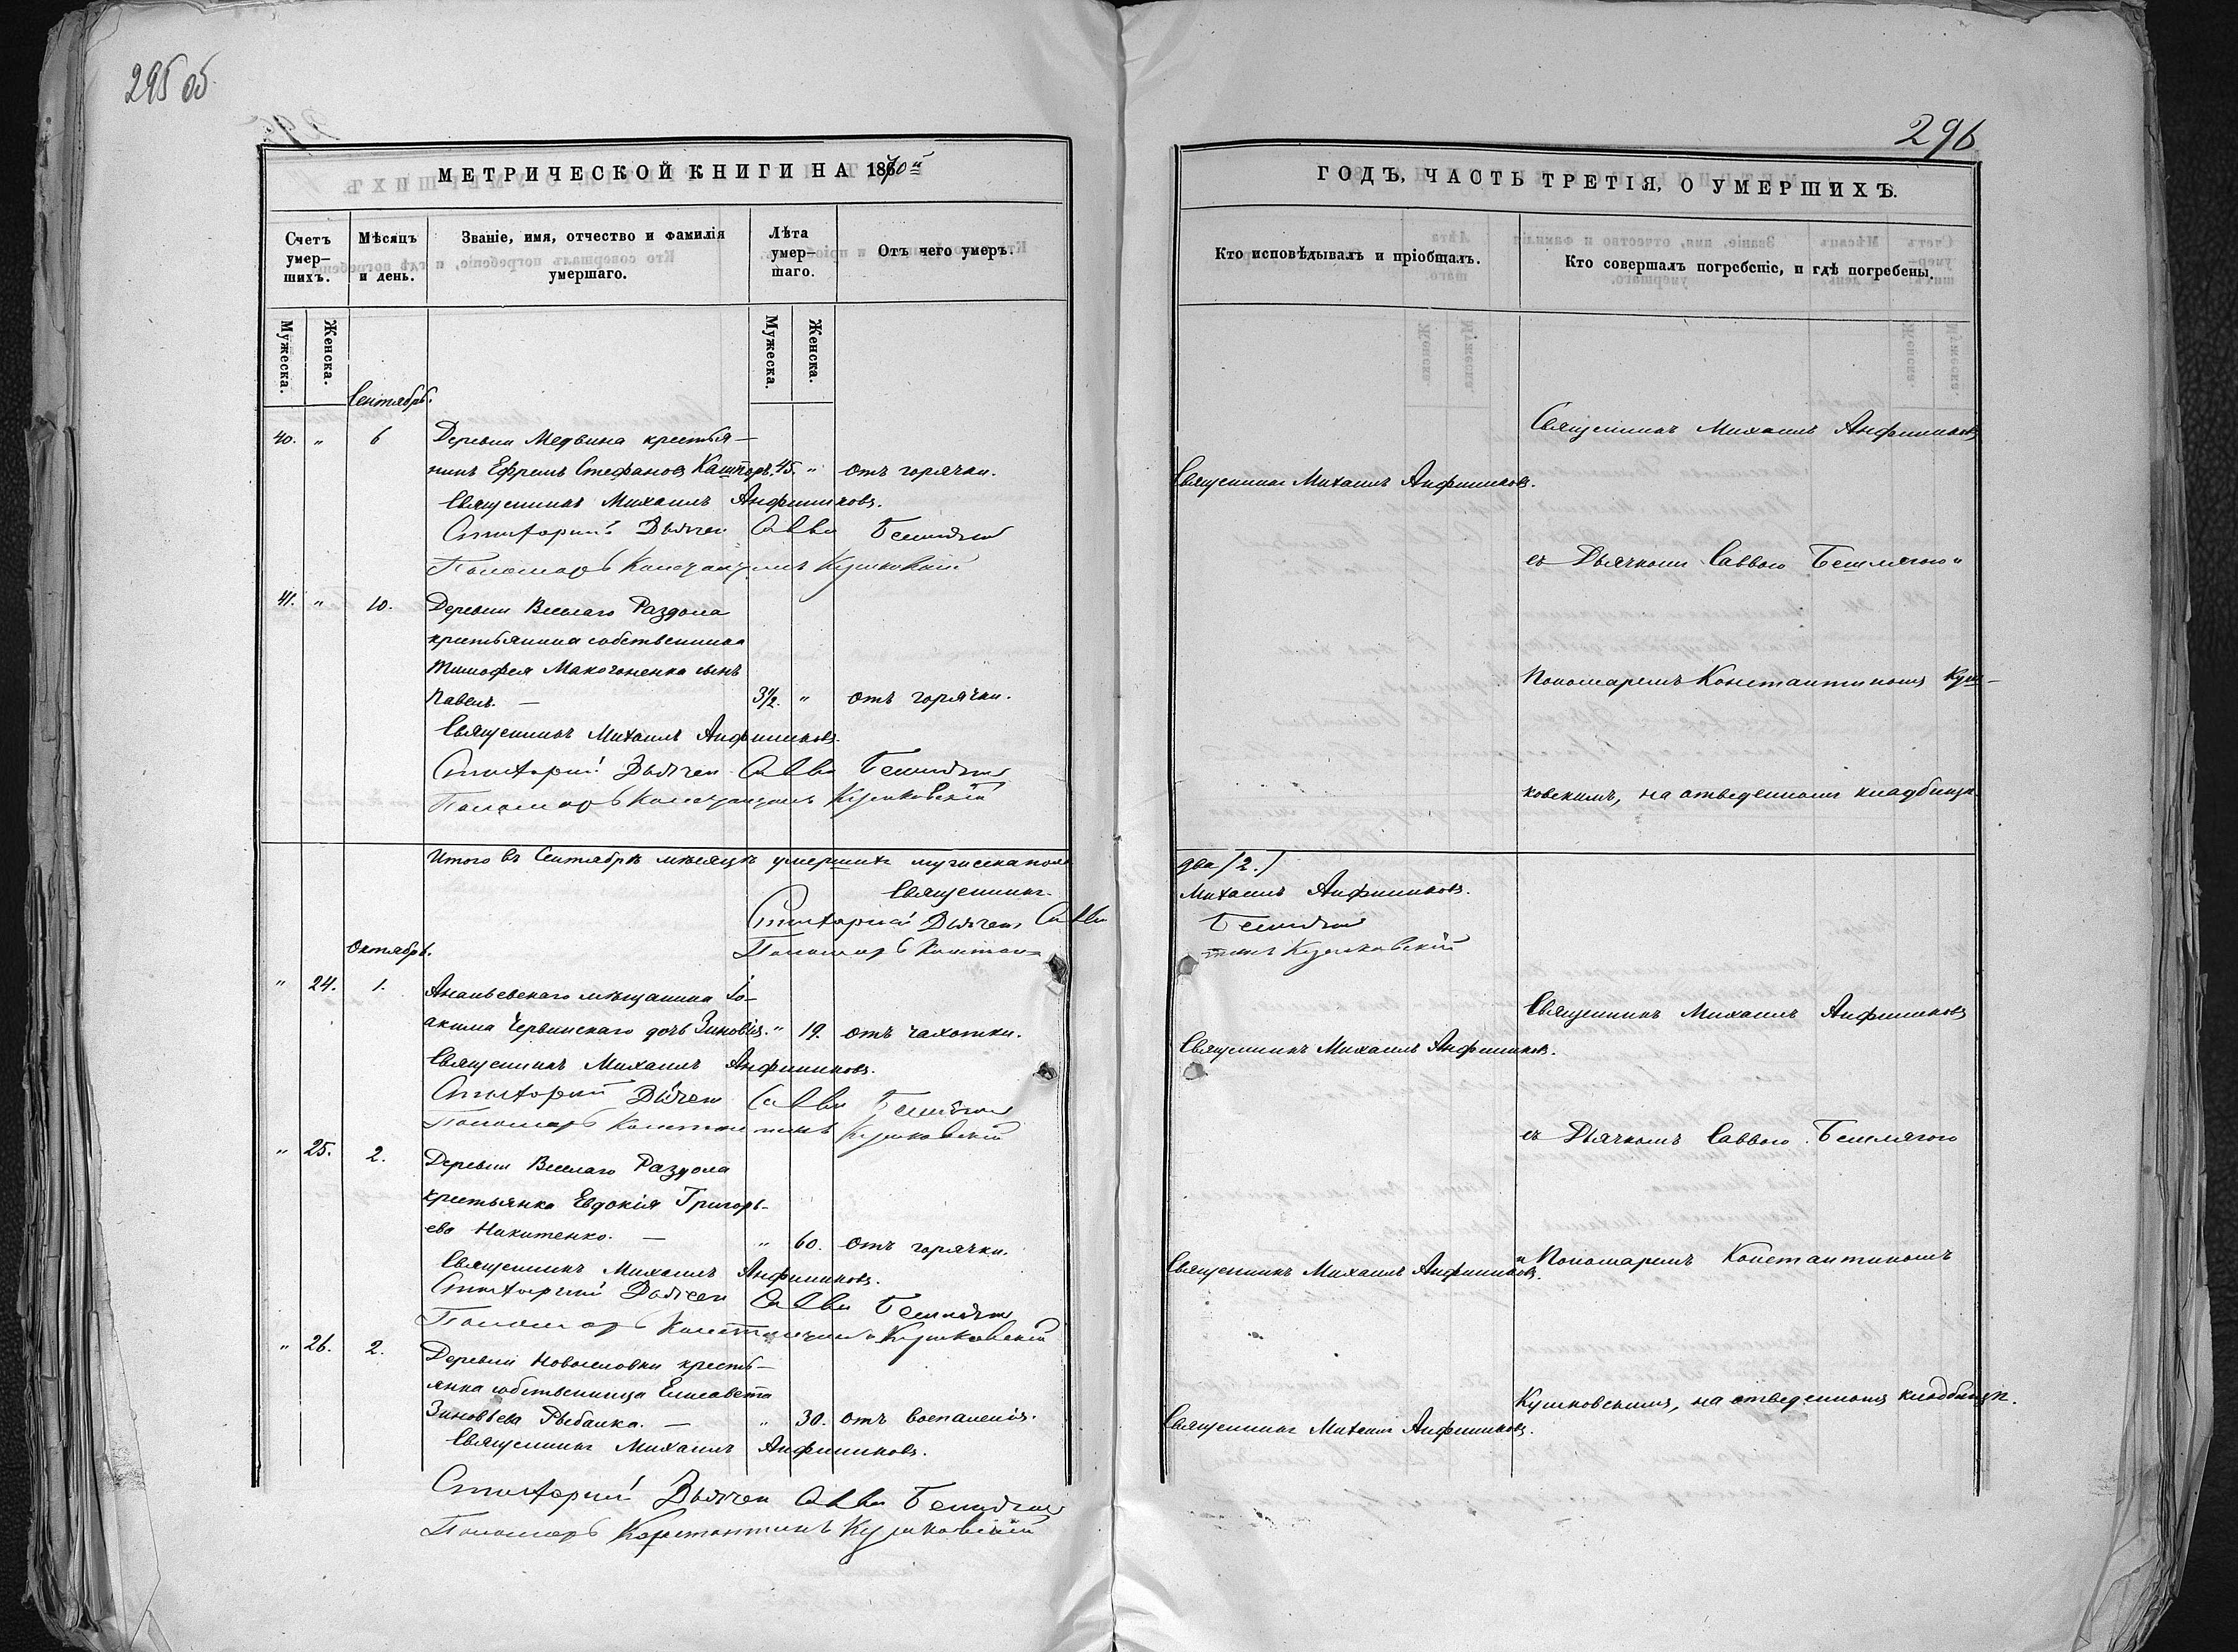 295 об
МЕТРИЧЕСКОЙ КНИГИ НА 1870й
Счетъ умер-шихъ.
Мѣсяцъ и день.
Званіе, имя, отчество и фамилія умершаго.
Лѣта умер-шаго.
Отъ чего умеръ.
Мужеска.
Женска.
Мужеска.
Женска.
Сентябрь.
40. " 6 Деревни Медвина крестья-
нинъ Ефремъ Стефановъ Кашторъ. 45. " отъ горячки.
Священникъ Михаилъ Анфиликовъ.
Дьячекъ Савва
Пономарь Константинъ Кушковскій
41. " 10. Деревни Веселаго Раздола
крестьянина собственника
Тимофея Макогоненка сынъ
Павелъ. — 3½. " отъ горячки.
Священникъ Михаилъ Анфиликовъ.
Дьячекъ Савва
Пономарь Константинъ Кушковскій
Итого въ Сентябрѣ мѣсяцѣ умершихъ мужеска пола
Священникъ
Дьячекъ Савва
Пономарь Констан-
Октябрь.
" 24. 1. Ананьевскаго мѣщанина Іо-
акима Червинскаго дочь Зиновія. " 19. отъ чахотки.
Священникъ Михаилъ Анфиликовъ.
Дьячекъ Савва
Пономарь Константинъ Кушковскій
" 25. 2. Деревни Веселаго Раздола
крестьянка Евдокія Григорь-
ева Никитенко. — " 60. отъ горячки.
Священникъ Михаилъ Анфиликовъ.
Дьячекъ Савва
Пономарь Константинъ Кушковскій
" 26. 2. Деревни Новоселовки кресть-
янка собственница Елисавета
Зиновьева Рыбалка. — " 30. отъ воспаленія.
Священникъ Михаилъ Анфиликовъ.
Дьячекъ Савва
Пономарь Константинъ Кушковскій
296
ГОДЪ, ЧАСТЬ ТРЕТІЯ, О УМЕРШИХЪ.
Кто исповѣдывалъ и пріобщалъ.
Кто совершалъ погребеніе, и гдѣ погребены.
Священникъ Михаилъ Анфиликовъ
Священникъ Михаилъ Анфиликовъ.
съ Дьячкомъ Саввою Бешлягою и
Пономаремъ Константиномъ Куш-
ковскимъ, на отведенномъ кладбищѣ.
два /2./
Михаилъ Анфиликовъ.
тинъ Кушковскій
Священникъ Михаилъ Анфиликовъ
Священникъ Михаилъ Анфиликовъ.
съ Дьячкомъ Саввою Бешлягою
и Пономаремъ Константиномъ
Священникъ Михаилъ Анфиликовъ.
Кушковскимъ, на отведенномъ кладбищѣ.
Священникъ Михаилъ Анфиликовъ.